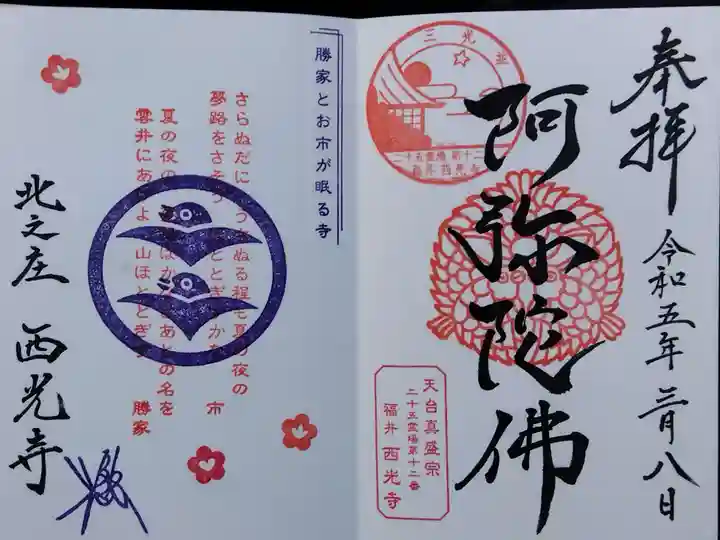 奉拝
令和五年三月八日
阿弥陀佛
三光
二十五霊場 第十二
福井 西光寺
天台真盛宗
二十五霊場第十二番
福井 西光寺
勝家とお市が眠る寺
さらぬだに
ぬる程も夏の夜の
夢路をさそ
ほととぎすかな
市
夏の夜の
はかなきあとの名を
雲井にあ
よ
山ほととぎす
勝家
北之庄 西光寺